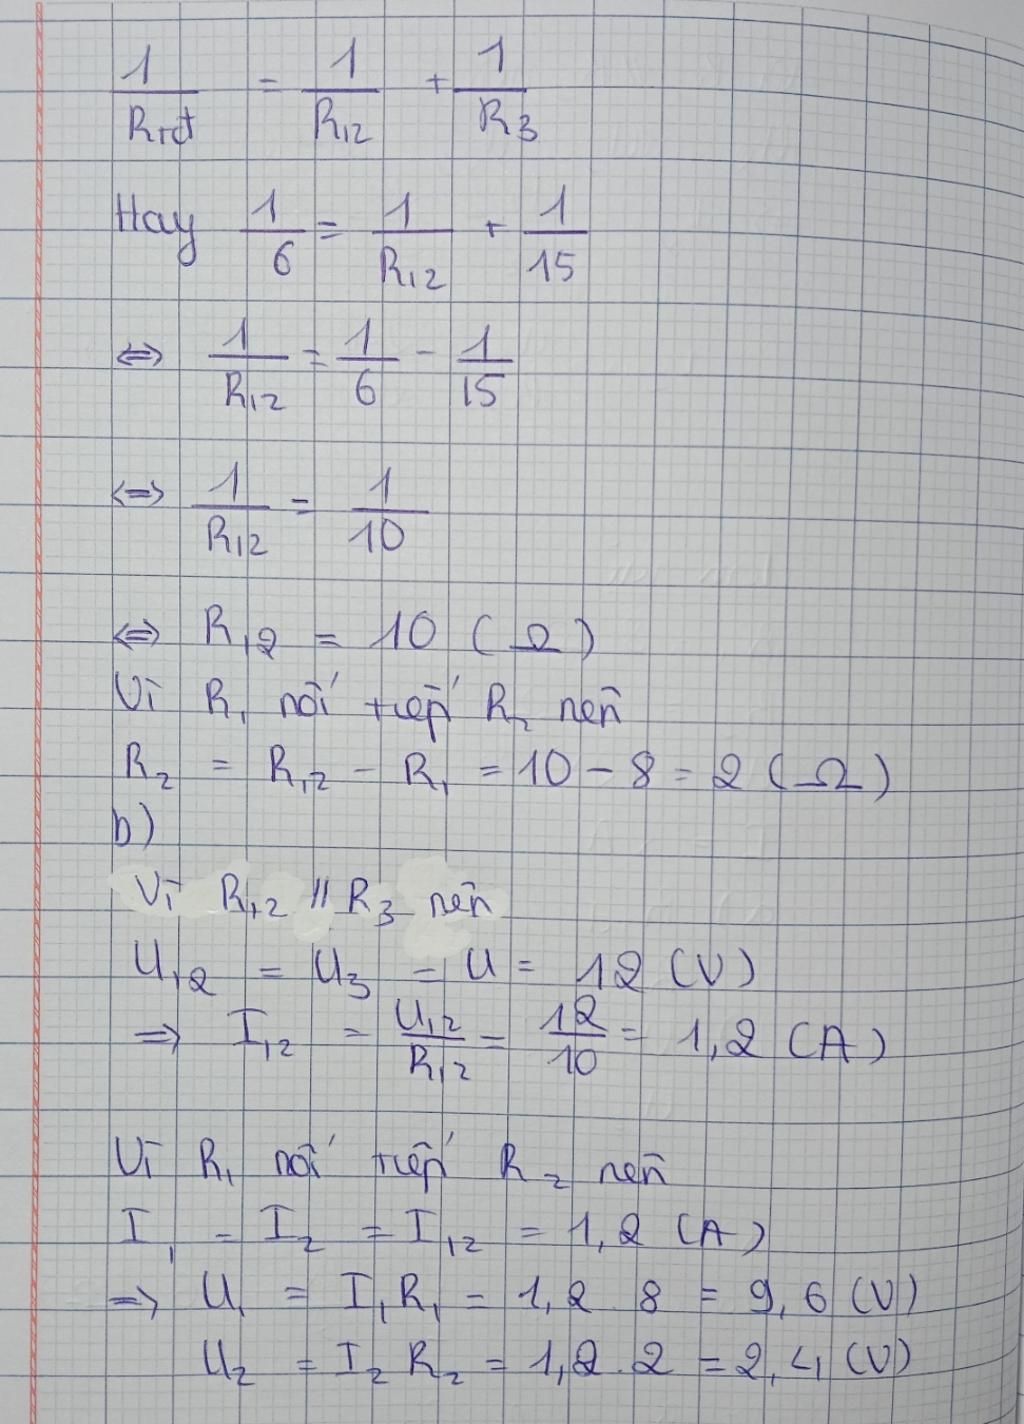 1/Rtđ = 1/R12 + 1/R3
Hay 1/6 = 1/R12 + 1/15
⇔ 1/R12 = 1/6 - 1/15
⇔ 1/R12 = 1/10
⇔ R12 = 10 (Ω)
Vì R1 nối tiếp R2 nên
R2 = R12 - R1 = 10 - 8 = 2 (Ω)
b)
Vì R12 // R3 nên
U12 = U3 = U = 12 (V)
⇒ I12 = U12/R12 = 12/10 = 1,2 (A)
Vì R1 nối tiếp R2 nên
I1 = I2 = I12 = 1,2 (A)
⇒ U1 = I1 R1 = 1,2 8 = 9,6 (V)
U2 = I2 R2 = 1,2 . 2 = 2,4 (V)